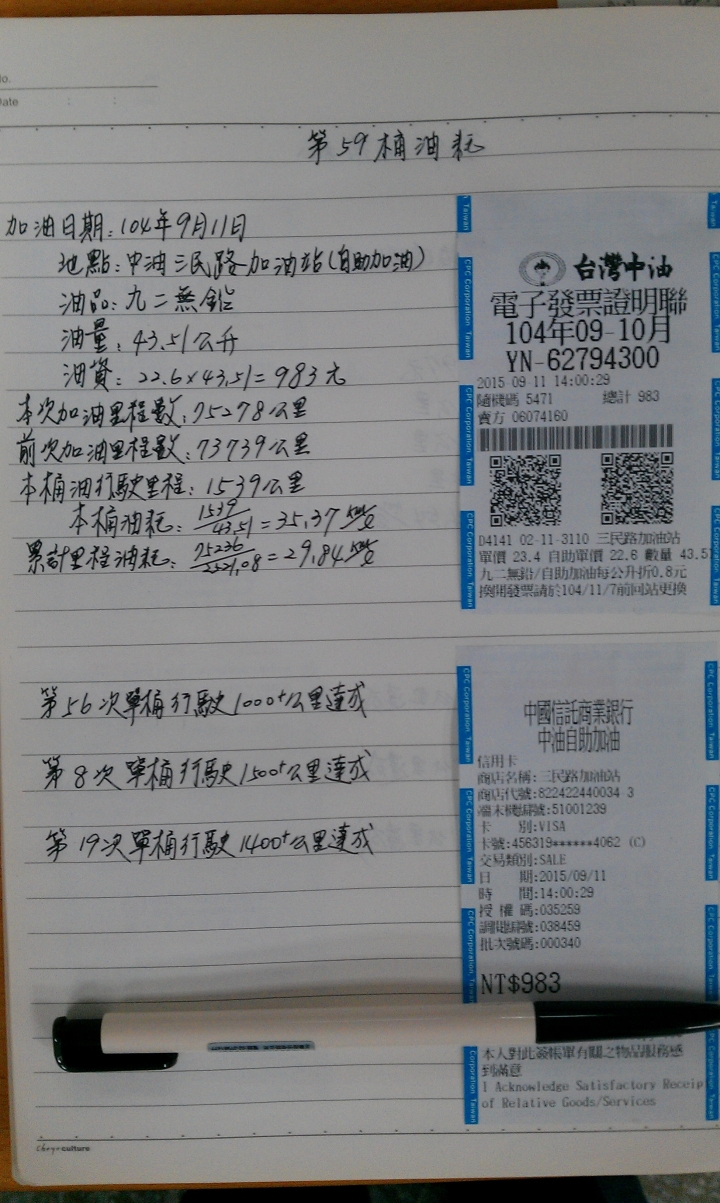 No.
Date : :
第59桶油耗
加油日期:104年9月11日
地點:中油三民路加油站(自助加油)
油品:九二無鉛
油量:43.51公升
油資:22.6×43.51=983元
本次加油里程數:75278公里
前次加油里程數:73739公里
本桶油行駛里程:1539公里
本桶油耗:1539/43.51=35.37 km/ℓ
累計里程油耗:75236/2521.08=29.84 km/ℓ
第56次單桶行駛1000⁺公里達成
第8次單桶行駛1500⁺公里達成
第19次單桶行駛1400⁺公里達成
台灣中油
電子發票證明聯
104年09-10月
YN-62794300
2015 09-11 14:00:29
隨機碼 5471 總計 983
賣方 06074160
D4141 02-11-3110 三民路加油站
單價 23.4 自助單價 22.6 數量 43.51
九二無鉛/自助加油每公升折0.8元
換開發票請於104/11/7前回站更換
中國信託商業銀行
中油自助加油
信用卡
商店名稱:三民路加油站
商店代號:822422440034 3
端末機編號:51001239
卡 別:VISA
卡號:456319******4062 (C)
交易類別:SALE
日 期:2015/09/11
時 間:14:00:29
授 權 碼:035259
調閱編號:038459
批次號碼:000340
NT$983
本人對此簽帳單有關之物品服務感
到滿意
I Acknowledge Satisfactory Receip
of Relative Goods/Services
CPC Corporation, Taiwan